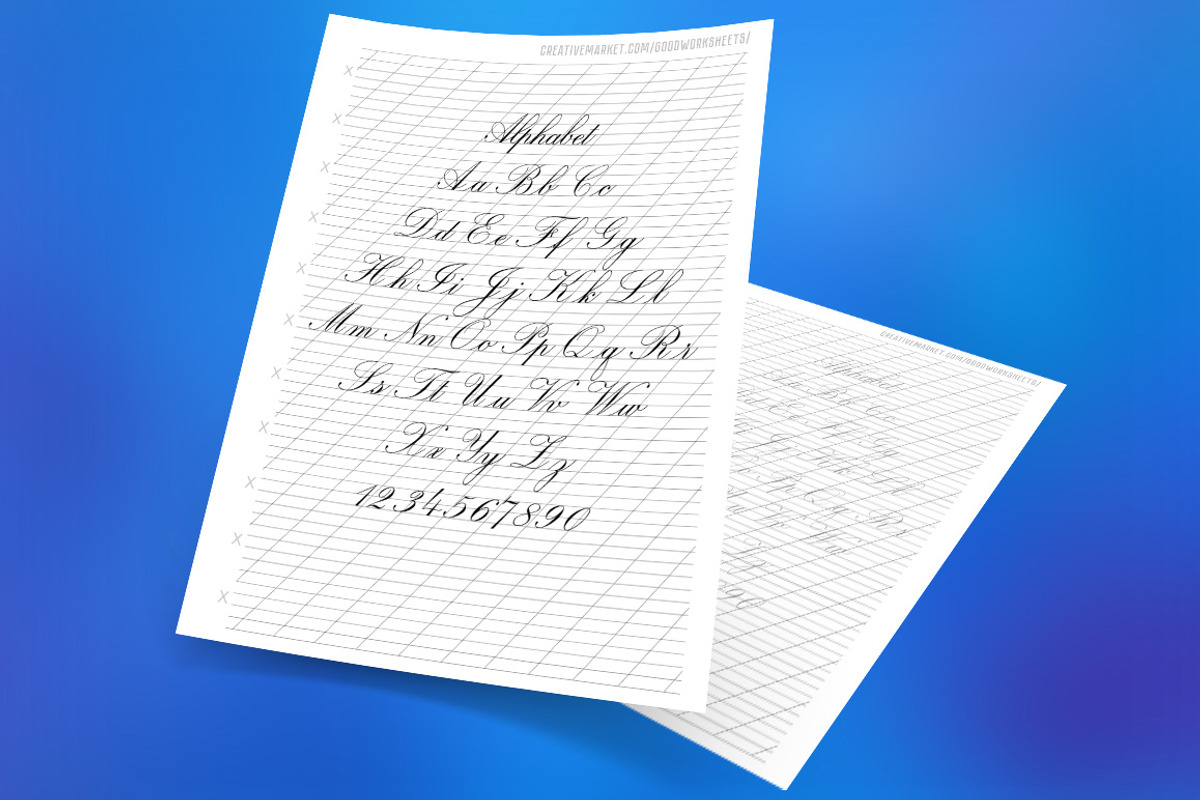 CREATIVEMARKET.COM/GOODWORKSHEETS/
X
X
X
X
X
X
X
X
X
X
X
Alphabet
Aa Bb Cc
Dd Ee Ff Gg
Hh Ii Jj Kk Ll
Mm Nn Oo Pp Qq Rr
Ss Tt Uu Vv Ww
Xx Yy Zz
1234567890
CREATIVEMARKET.COM/GOODWORKSHEETS/
Alphabet